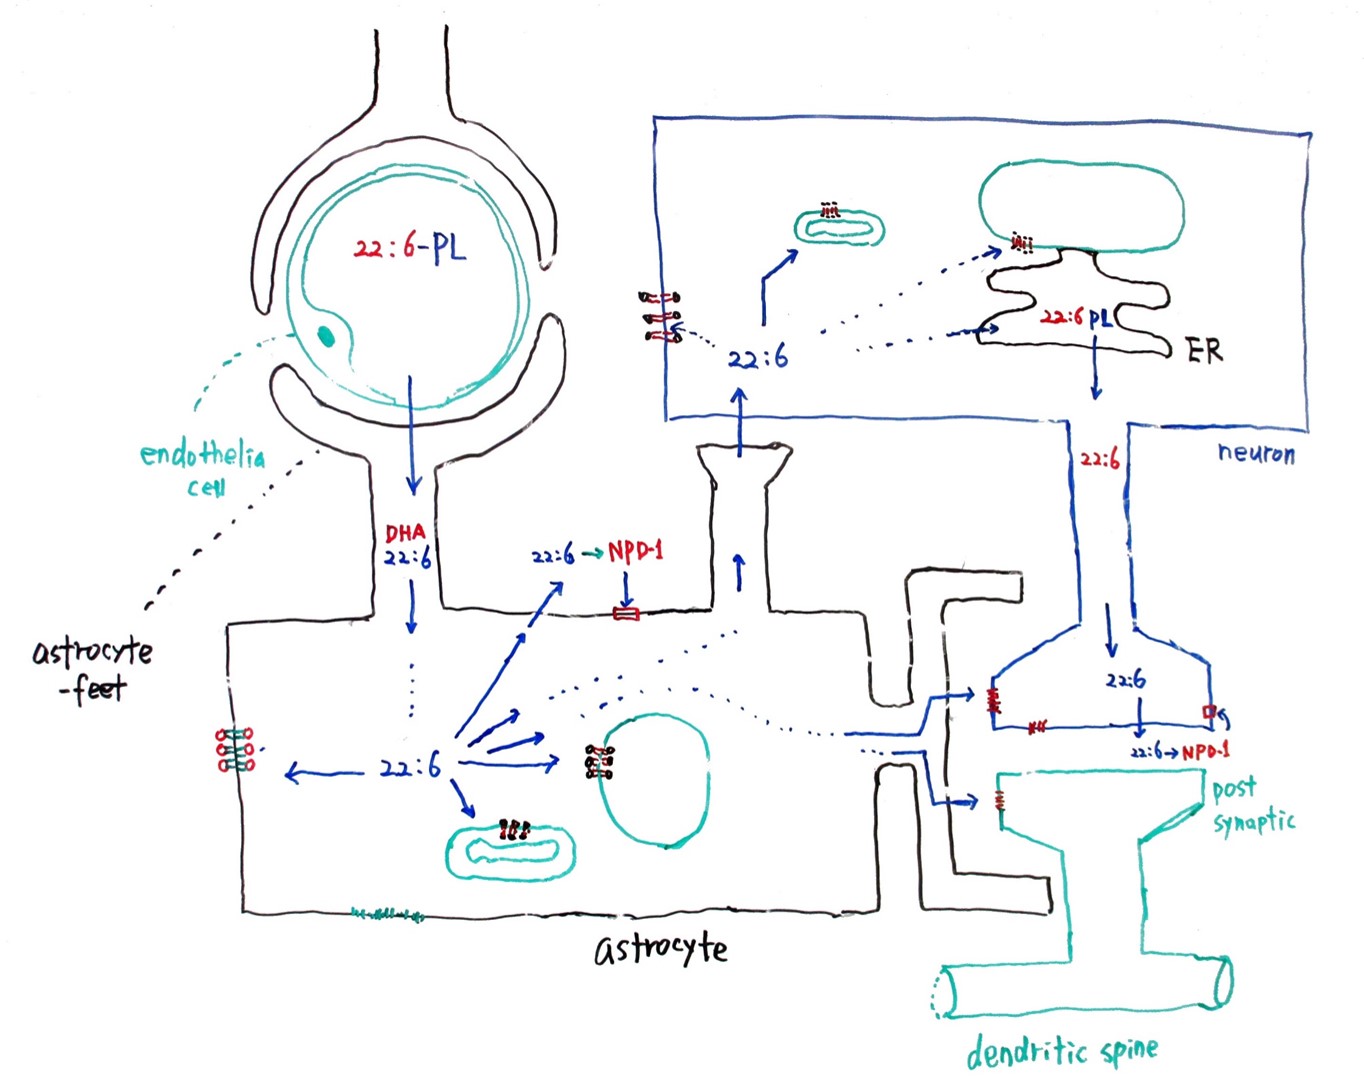 22:6-PL
endothelia
cell
astrocyte
-feet
DHA
22:6
22:6→NPD-1
22:6
astrocyte
22:6
22:6 PL
ER
neuron
22:6
22:6
22:6→NPD-1
post
synaptic
dendritic spine